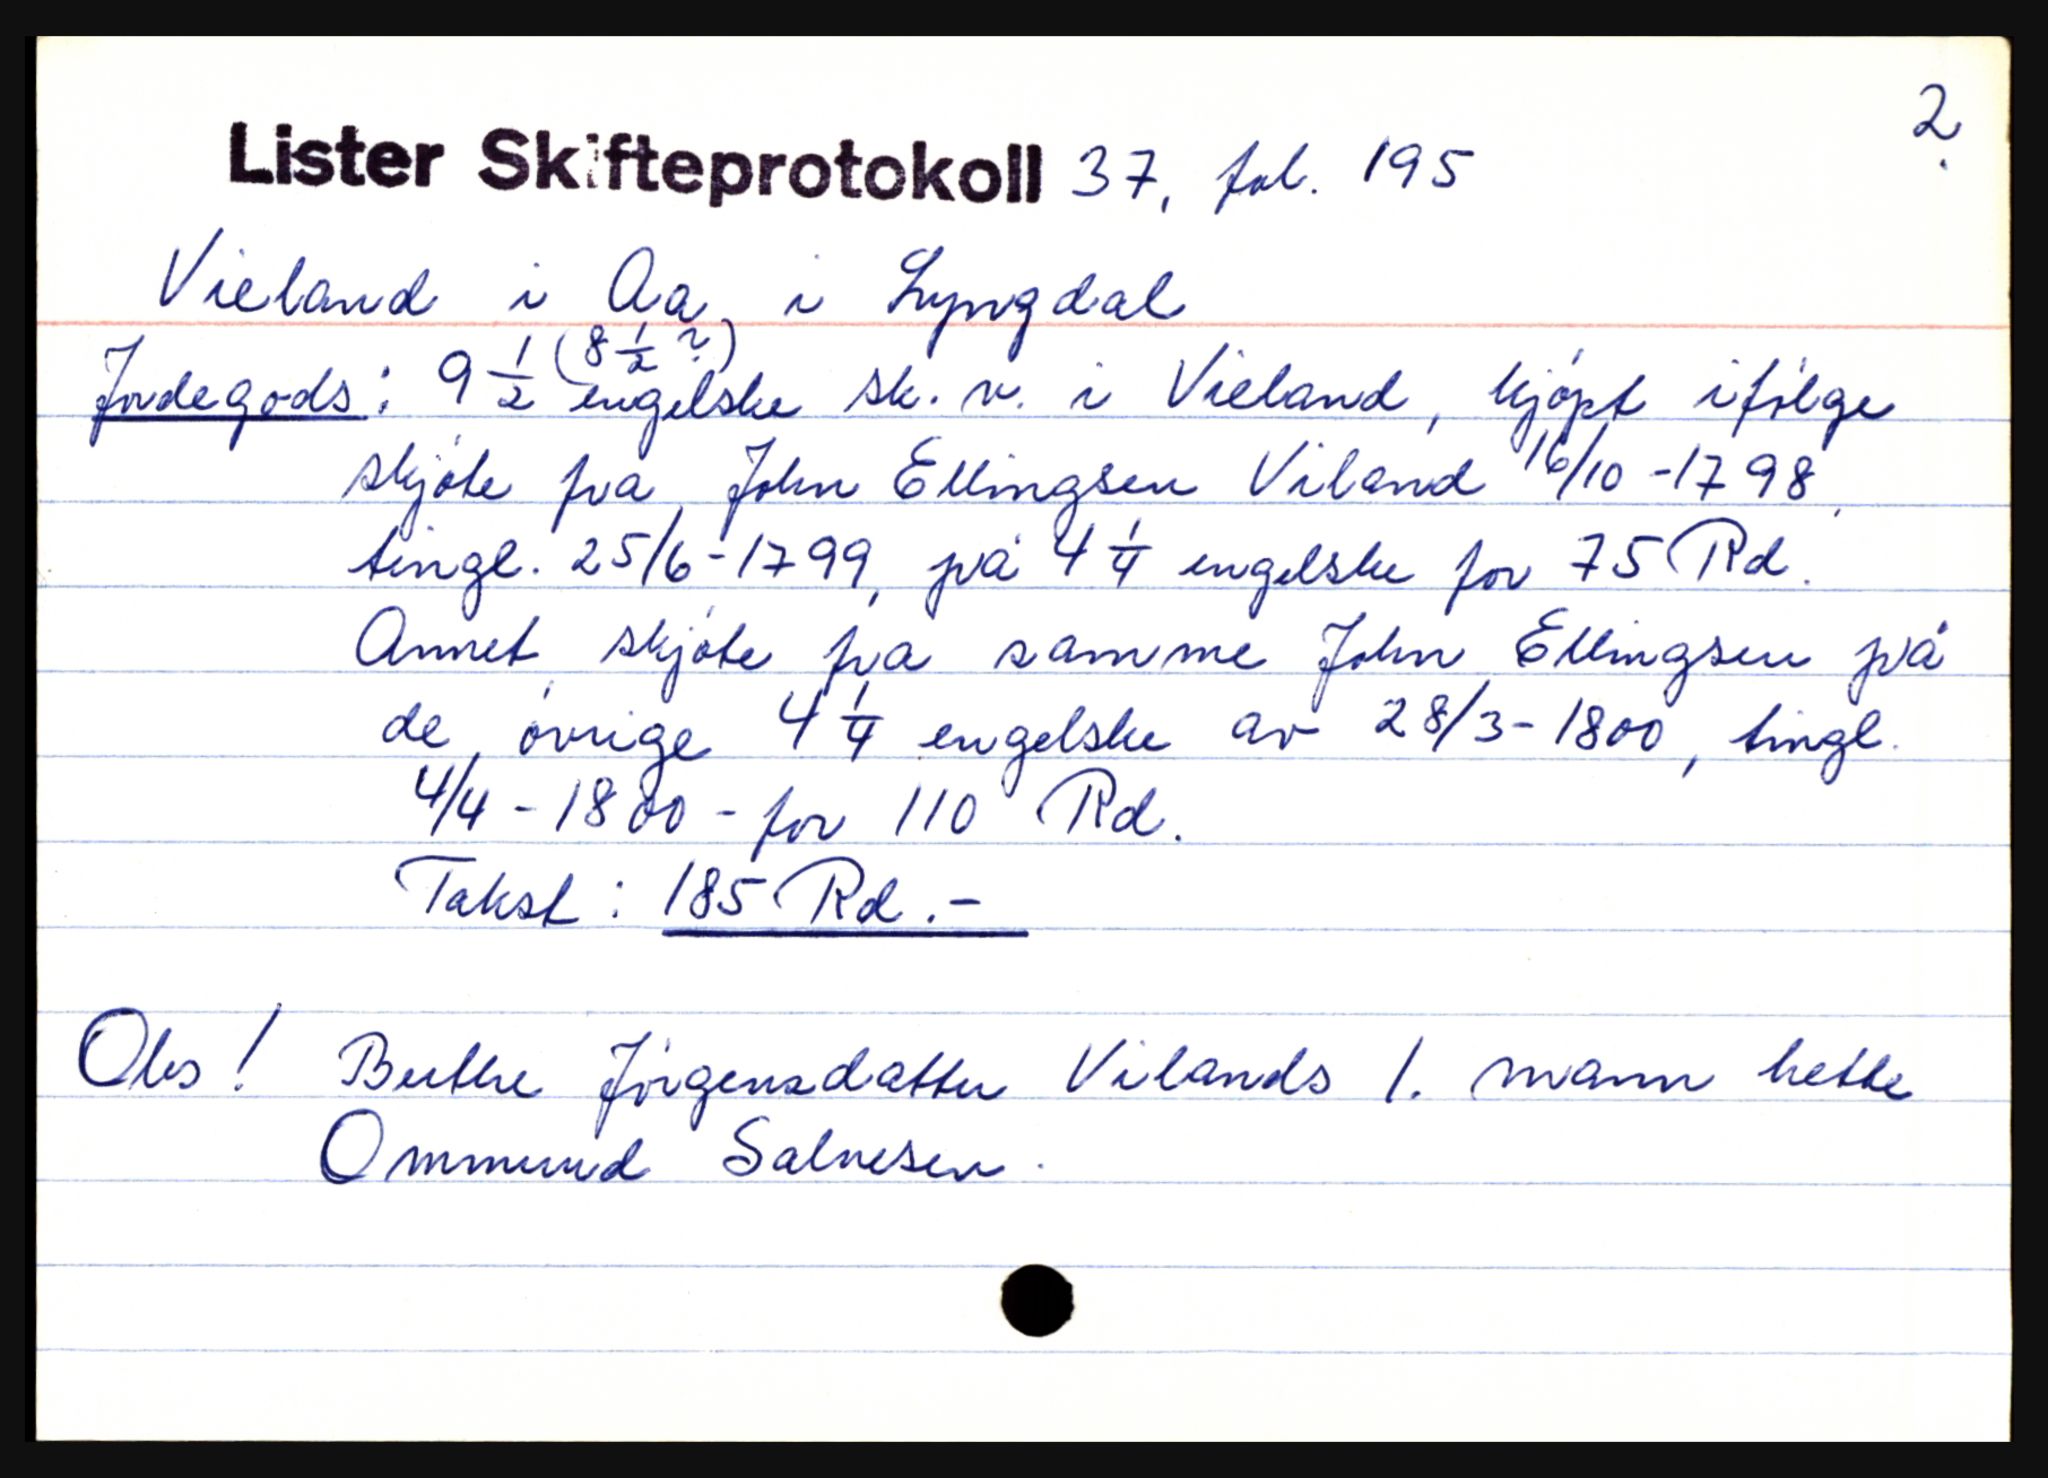 2.
Lister Skifteprotokoll 37, fol. 195
Vieland i Aa i Lyngdal
Jordegods: 9 1/2 (8 1/2 ?) engelske sk. v. i Vieland, kjøpt ifølge
skjøte fra John Ellingsen Viland 16/10 - 1798,
tingl. 25/6 - 1799, på 4 1/4 engelske for 75 Rd.
Annet skjøte fra samme John Ellingsen på
de øvrige 4 1/4 engelske av 28/3 - 1800, tingl.
4/4 - 1800 - for 110 Rd.
Takst: 185 Rd.-
Obs! Berthe Jørgensdatter Vilands 1. mann hette
Ommund Salvesen.